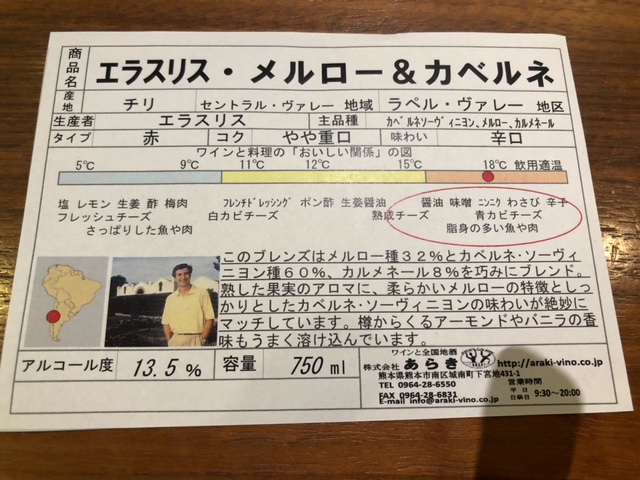 商品名 エラスリス・メルロー＆カベルネ
産地 チリ セントラル・ヴァレー 地域 ラペル・ヴァレー 地区
生産者 エラスリス 主品種 カベルネソーヴィニヨン、メルロー、カルメネール
タイプ 赤 コク やや重口 味わい 辛口
ワインと料理の「おいしい関係」の図
5℃ 9℃ 11℃ 12℃ 15℃ 18℃ 飲用適温
塩 レモン 生姜 酢 梅肉 フレンチドレッシング ポン酢 生姜醤油 醤油 味噌 ニンニク わさび 辛子
フレッシュチーズ 白カビチーズ 熟成チーズ 青カビチーズ
さっぱりした魚や肉 脂身の多い魚や肉
このブレンズはメルロー種３２％とカベルネ・ソーヴィ
ニヨン種６０％、カルメネール８％を巧みにブレンド。
熟した果実のアロマに、柔らかいメルローの特徴としっ
かりとしたカベルネ・ソーヴィニヨンの味わいが絶妙に
マッチしています。樽からくるアーモンドやバニラの香
味もうまく溶け込んでいます。
アルコール度 13.5 % 容量 750 ml
ワインと全国地酒
株式会社 あらき http://araki-vino.co.jp
熊本県熊本市南区城南町下宮地431-1
TEL 0964-28-6550 営業時間
FAX 0964-28-6831 平日
E-mail info@araki-vino.co.jp 日祭日 9:30～20:00